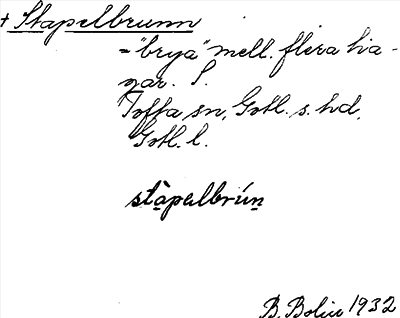 + Stapelbrunn
= "brya" mell. flera ha-
gar. S.
Tofta sn, Gotl. s. hd,
Gotl. l.
stàpalbrún
B. Bolin 1932